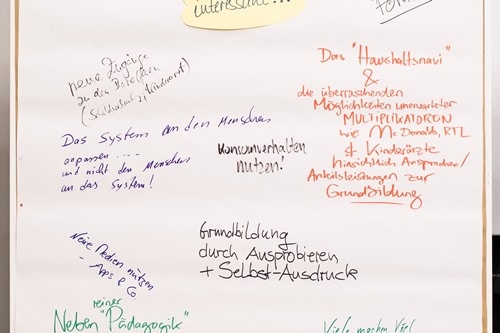 interessant...
neue Zugänge
zu den
Das "Haushaltsnavi"
&
die überraschenden
Möglichkeiten unerwarteter
MULTIPLIKATOREN
wie Mc Donalds, RTL
& Kinderärzte
hinsichtlich Ansprachen/
Anteilsleistungen zur
Grundbildung
Das System an den Menschen
anpassen ....
und nicht den Menschen
an das System!
Konsumverhalten
nutzen!
Grundbildung
durch Ausprobieren
+ Selbst-Ausdruck
Neue Medien nutzen
- Apps & Co.
reiner
Neben "Pädagogik"
Viele machen Viel